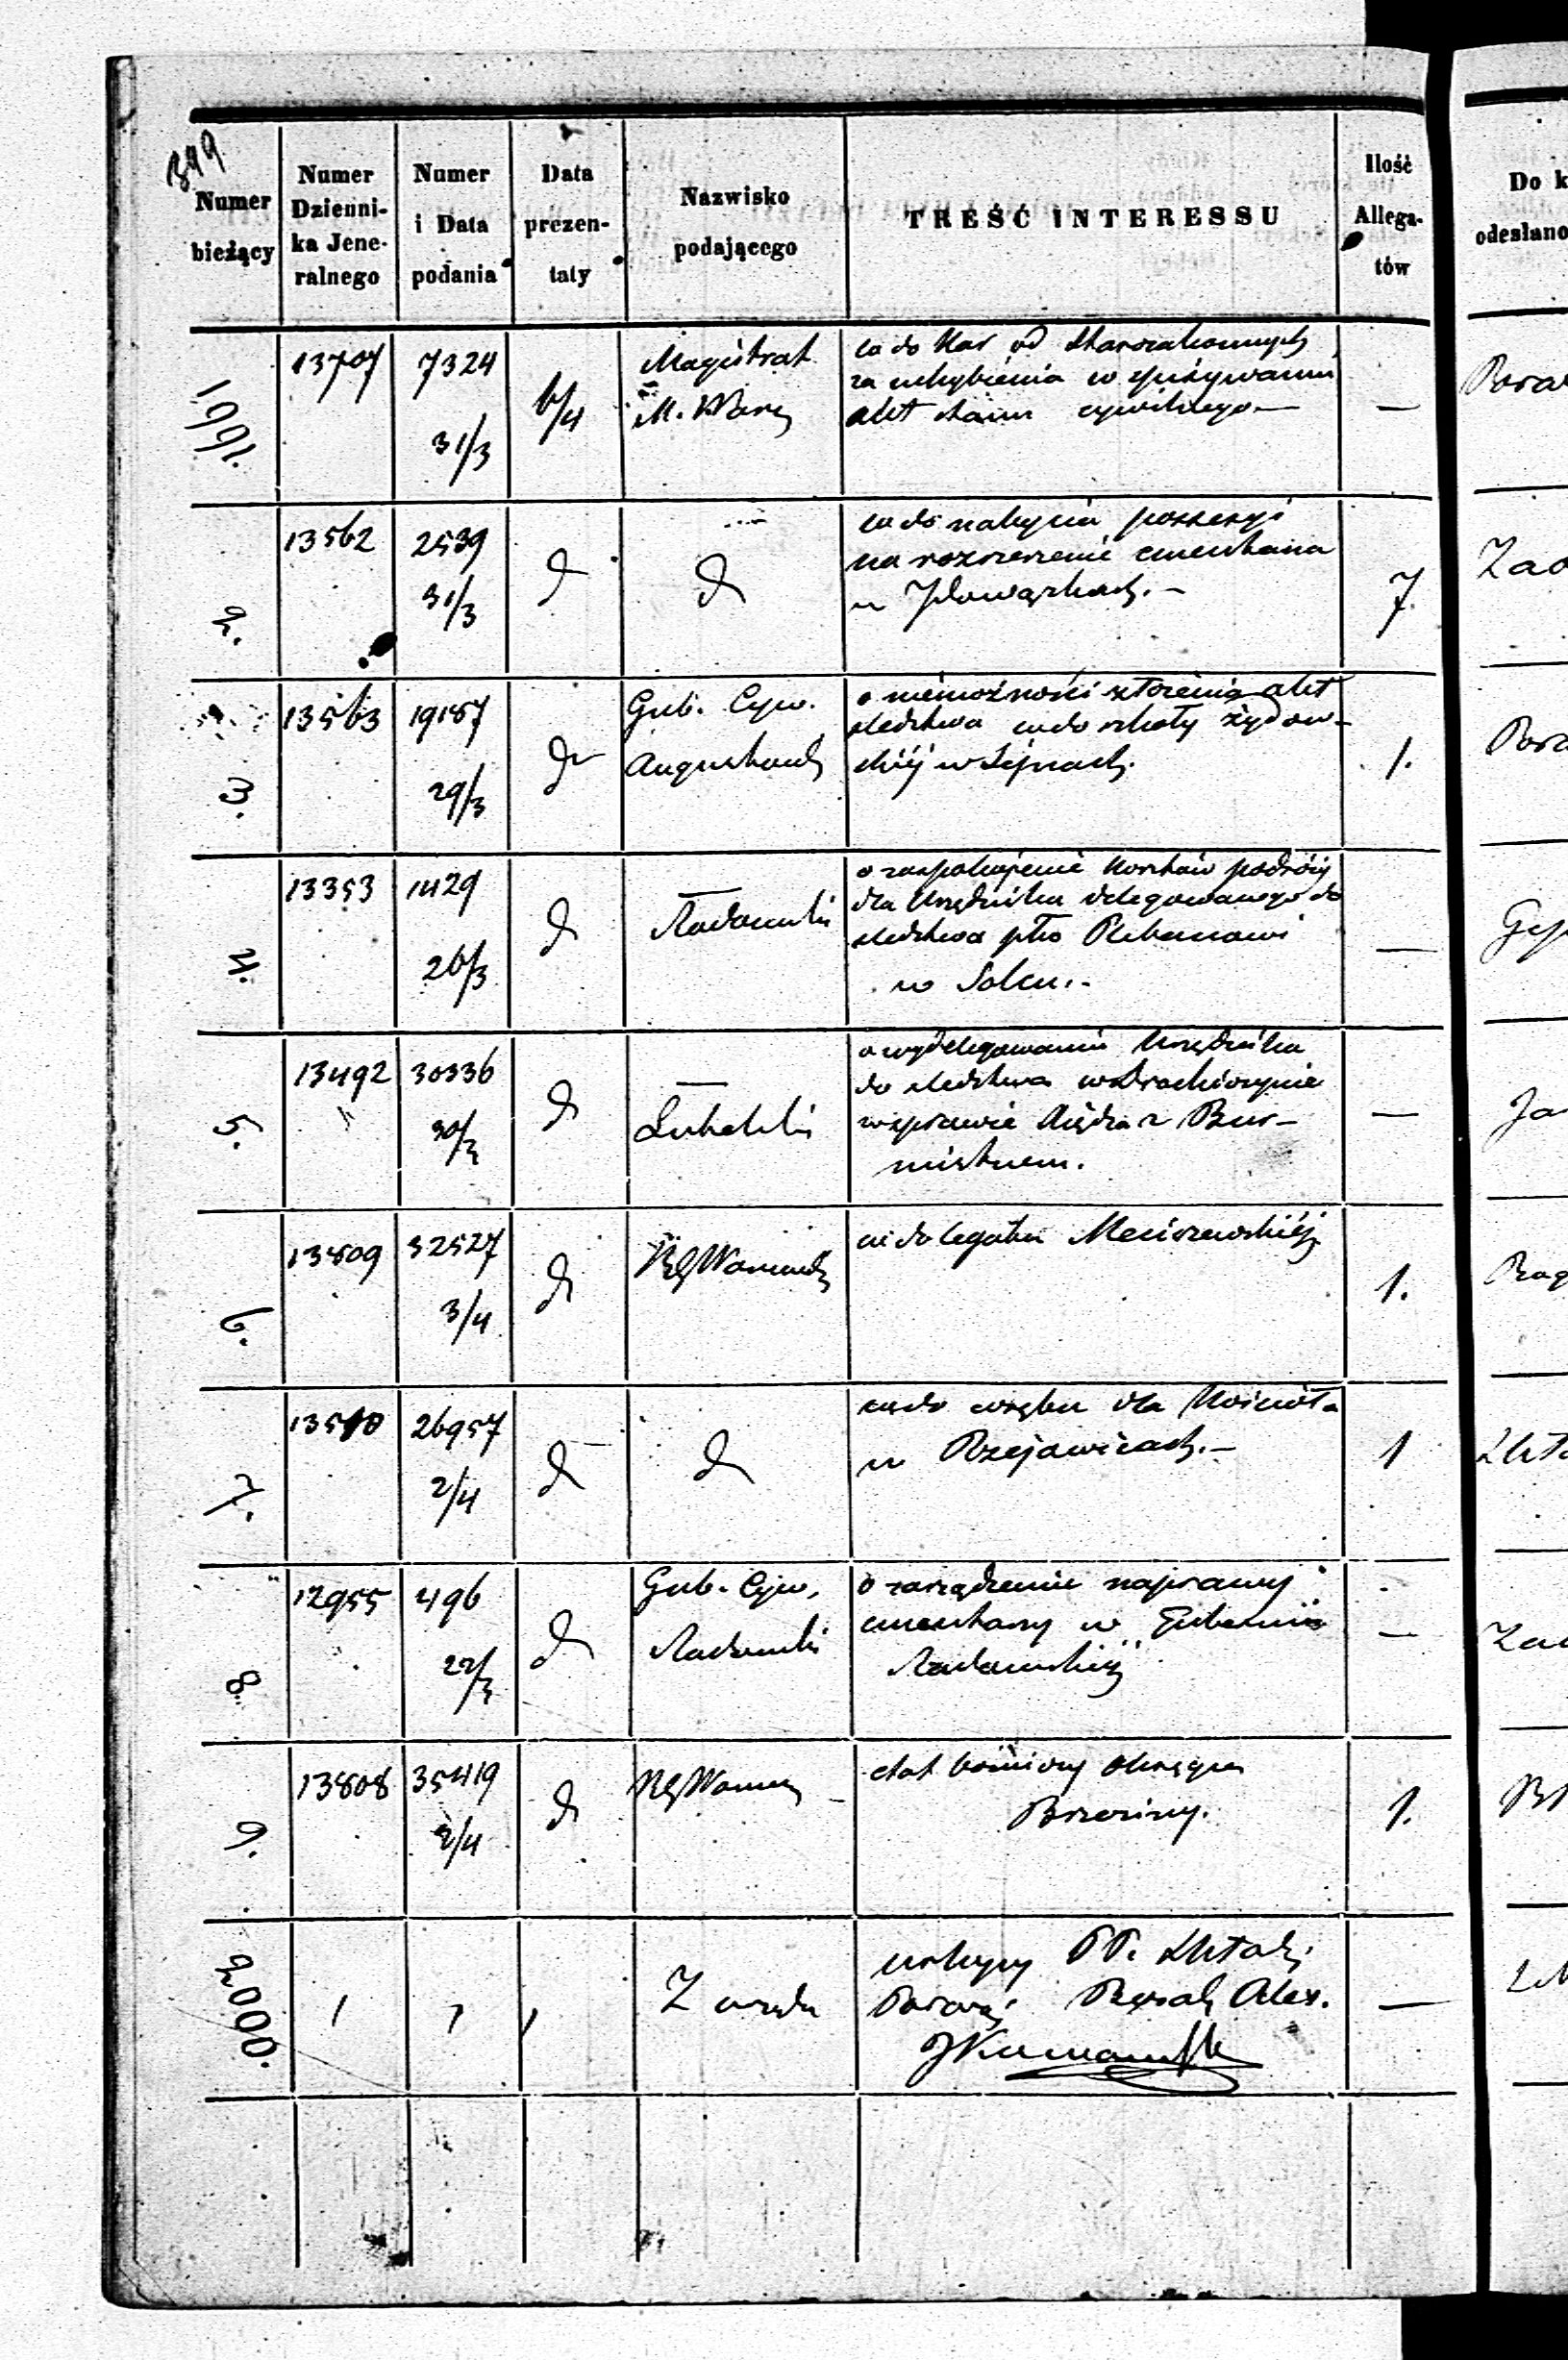 399
Numer bieżący
Numer Dzienni- ka Jene- ralnego
Numer i Data podania
Data prezen- taty
Nazwisko podającego
TREŚĆ INTERESSU
Ilość Allega- tów
Do k
odesłano
1991.
13707
7324
31/3
6/4
Magistrat
M. Warsz
co do kar od starozakonnych
za uchybienia w spisywaniu
akt stanu cywilnego.—
—
2.
13562
2539
31/3
d
d
co do nabycia possesyi
na rozszerzenie cmentarza
w Powązkach.—
7.
3.
13563
19187
29/3
d
Gub. Cyw.
Augustowsk
o niemożności złożenia akt
śledztwa co do szkoły żydow-
skiéj w Sejnach.
1.
4.
13353
1429
26/3
d
—
Radomski
o zaspokojenie kosztów podróży
dla Urzędnika delegowanego do
śledztwa pko Plebanowi
w Solcu.-
—
5.
13492
30336
30/3
d
—
Lubelski
o wydelegowaniu Urzędnika
do śledztwa
w sprawie Księdza z Bur-
mistrzem.
—
Ja
6.
13809
32527
3/4
d
co do legatu Meciszewskiéj
1.
7.
13510
26957
2/4
d
d
co do wrębu dla Kościoła
w Rzejowicach.—
1
8.
12955
496
22/3
d
Gub. Cyw.
Radomski
o zarządzenie naprawy
cmentarzy w Gubernii
Radomskiéj
—
9.
13808
35419
2/4
d
etat bóżniczy Okręgu
Brzeziny.
1.
2000.
Z urzędu
PP.
Alex.
—